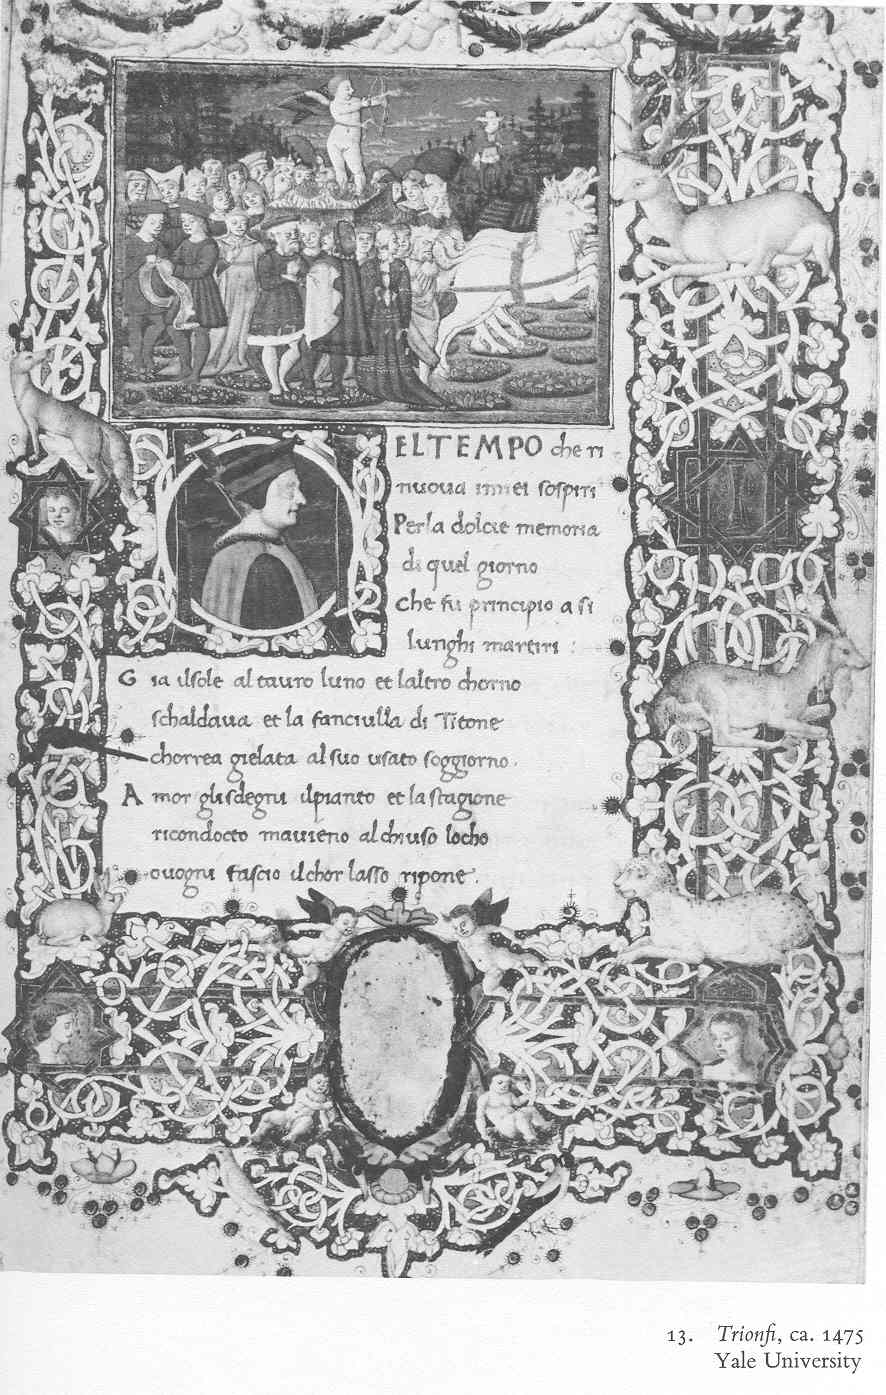 NEL TEMPO che ri
nuova imiei sospiri
Per la dolcie memoria
di quel giorno
che fu principio a si
lunghi martiri :
G ia ilsole al tauro luno et laltro chorno
schaldaua et la fanciulla di Titone
chorrea gielata al suo usato soggiorno.
A mor gli sdegni ilpianto et la stagione
ricondocto mauieno al chiuso locho
ouogni fascio ilchor lasso ripone
13. Trionfi, ca. 1475
Yale University